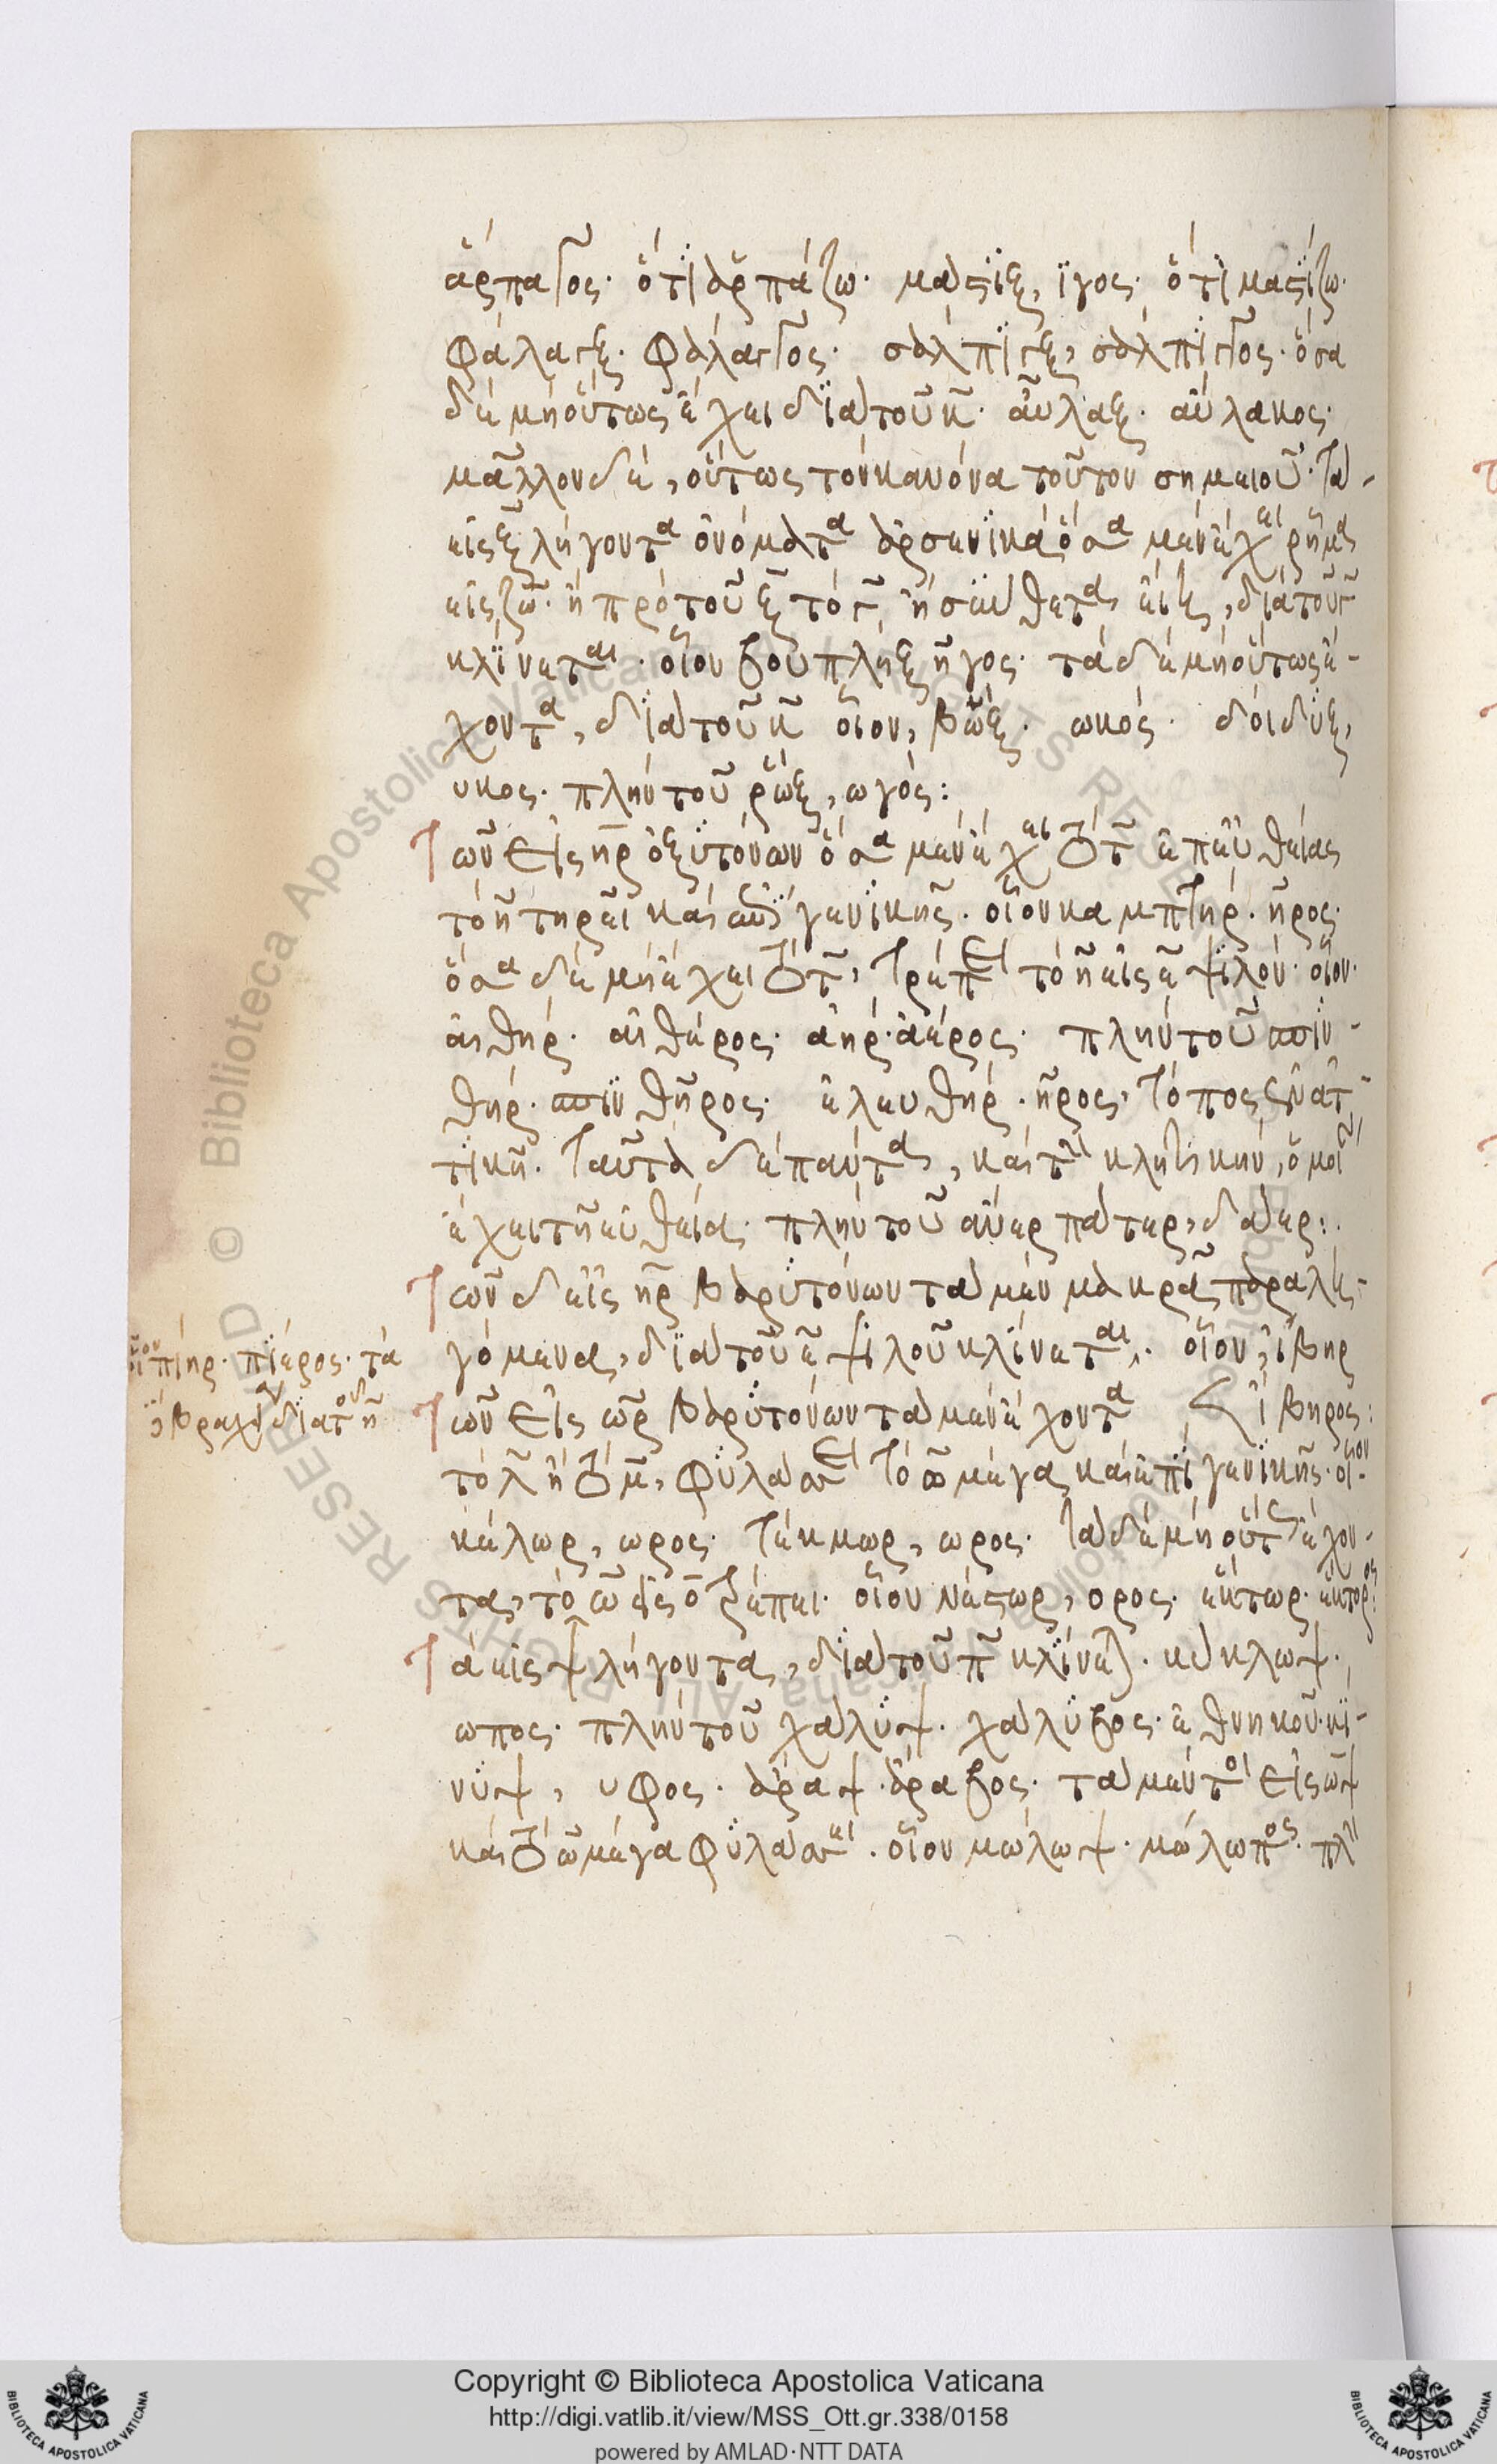 ἅρπαγος. ὅτι ἁρπάζω. μάστιξ, ιγος. ὅτι μαστίζω.
φάλαγξ. φάλαγγος. σάλπιγξ, σάλπιγγος. ὅσα
δὲ μὴ οὕτως ἔχει διὰ τοῦ κ. αὖλαξ. αὔλακος.
μᾶλλον δὲ, οὕτως τὸν κανόνα τοῦτον σημειοῦ. τὰ
εἰς ξ λήγοντα ὀνόματα ἀρσενικὰ ὅσα μὲν ἔχει ῥῆμα
εἰς ζω. ἢ πρὸ τοῦ ξ τὸ γ ἢ σύνθετά εἰσι, διὰ τοῦ γ
κλίνεται. οἷον βουπλὴξ ῆγος. τὰ δὲ μὴ οὕτως ἔ-
χοντα, διὰ τοῦ κ οἷον, βὼξ. ωκός. δοίδυξ,
υκος. πλὴν τοῦ ῥὼξ, ωγός:
Τῶν εἰς ηρ ὀξυτόνων ὅσα μὲν ἔχει τὸ τ ἐπ' εὐθείας
τὸ η τηρεῖ καὶ ἐπὶ γενικῆς. οἷον καμπτήρ. ῆρος.
ὅσα δὲ μὴ ἔχει τὸ τ, τρέπει τὸ η εἰς ε ψιλόν. οἷον.
αἰθήρ. αἰθέρος. ἀήρ. ἀέρος. πλὴν τοῦ σπιν-
θήρ. σπινθῆρος. ἐλευθήρ. ῆρος. τόπος ἐν ἀτ-
τικῇ. ταῦτα δὲ πάντα, καὶ τὴν κλητικὴν, ὁμοί
ἔχει τῇ εὐθείᾳ. πλὴν τοῦ ἄνερ πάτερ, δάερ:
Τῶν δὲ εἰς ηρ βαρυτόνων τὰ μὲν μακρᾷ παραλη-
γόμενα, διὰ τοῦ ε ψιλοῦ κλίνεται. οἷον, ἴβηρ
ἴβηρος:
οἷον πίηρ. πίερος. τὰ
δὲ βραχείᾳ διὰ τοῦ η
Τῶν εἰς ωρ βαρυτόνων τὰ μὲν ἔχοντα
τὸ λ ἢ τὸ μ, φυλάσσει τὸ ω μέγα καὶ ἐπὶ γενικῆς. οἷον
κέλωρ, ωρος. τέκμωρ, ωρος. τὰ δὲ μὴ οὕτως ἔχον-
τα, τὸ ω εἰς ο τρέπει. οἷον νέστωρ, ορος. ἕκτωρ. ἕκτορος:
Τὰ εἰς ψ λήγοντα, διὰ τοῦ π κλίνεται. κύκλωψ.
ωπος. πλὴν τοῦ χάλυψ. χάλυβος. ἐθνικοῦ. κί-
νυψ, υφος. ἄραψ. ἄραβος. τὰ μέντοι εἰς ωψ
καὶ τὸ ω μέγα φυλάσσει. οἷον μώλωψ. μώλωπος. πλὴν
Copyright © Biblioteca Apostolica Vaticana
http://digi.vatlib.it/view/MSS_Ott.gr.338/0158
powered by AMLAD·NTT DATA